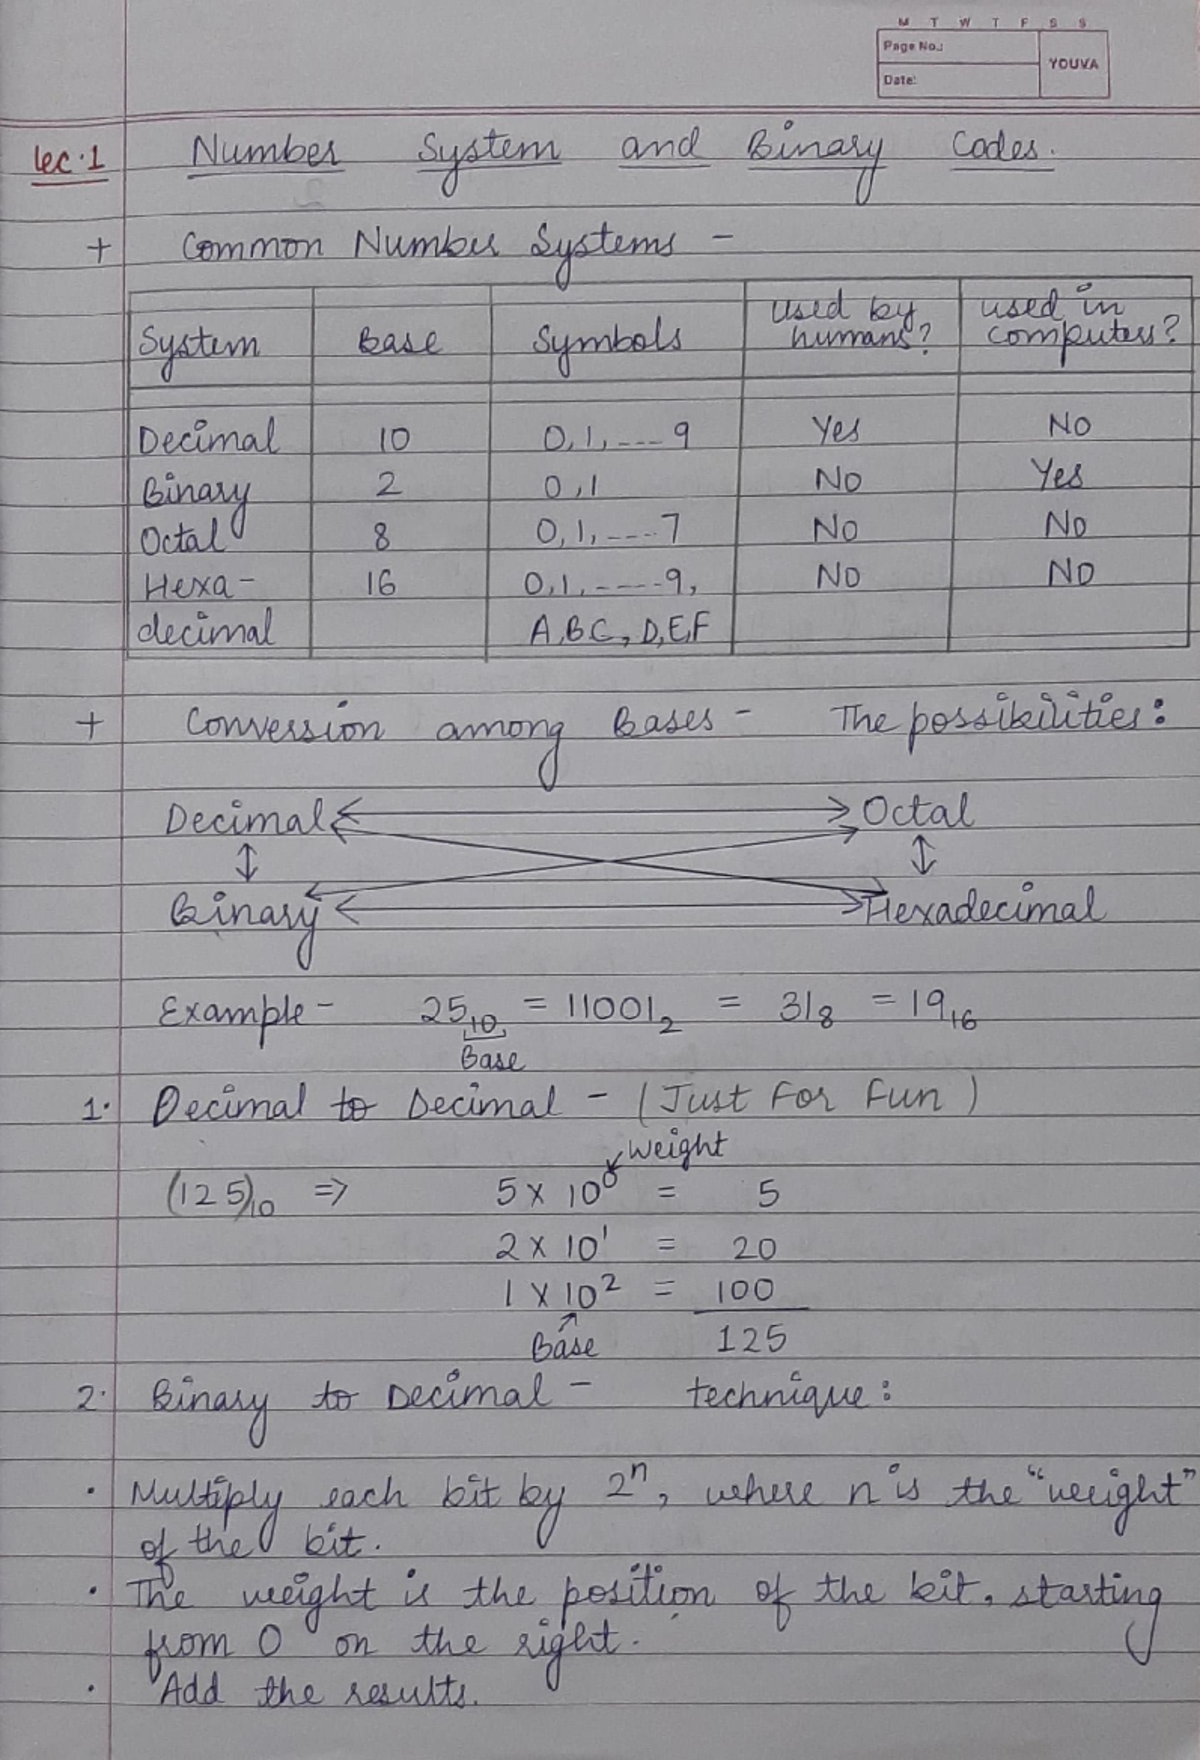 M T W T F S S
Page No.:
YOUVA
Date:
Lec.1 Number System and Binary Codes.
+ Common Number Systems -
System Base Symbols used by humans? used in computers?
Decimal 10 0,1,....9 Yes No
Binary 2 0,1 No Yes
Octal 8 0,1,....7 No No
Hexa- 16 0,1,.....9, No No
decimal A,B,C,D,E,F
+ Conversion among Bases - The possibilities:
Decimal ⟷ Octal
↕ ↕
Binary ⟷ Hexadecimal
Example - 25₁₀ = 11001₂ = 31₈ = 19₁₆
Base
1. Decimal to Decimal - (Just For Fun)
Weight
(125)₁₀ ⇒ 5 × 10⁰ = 5
2 × 10¹ = 20
1 × 10² = 100
Base 125
2. Binary to Decimal - technique:
• Multiply each bit by 2ⁿ, where n is the "weight"
of the bit.
• The weight is the position of the bit, starting
from 0 on the right.
• Add the results.